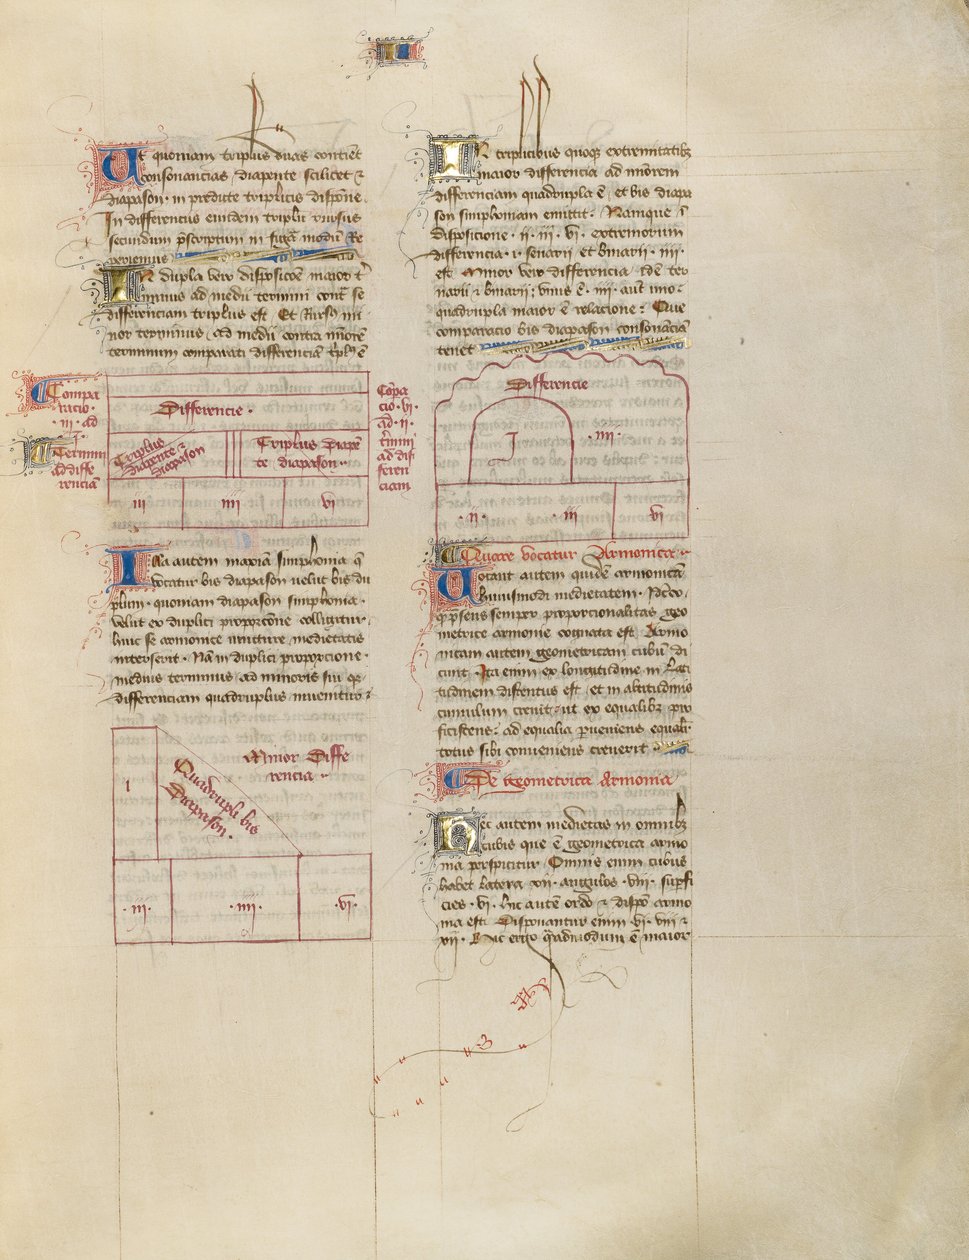 Et quoniam triplus duas continet
consonancias, diapente scilicet ⁊
diapason. in predicte triplicis dispone.
In differenciis eiusdem tripli rursus
secundum
reperiemus
In dupla vero disposicõe maior t
minus ad medii termini cont se
differenciam triplus est. Et Rurs mi
nor terminus, ad medii contra minorẽ
terminum comparati differenciã tplꝰ ẽ
Compa
racio.
.iii. ad
Termini
ad diffe
renciã
Differencie.
Triplus
diapente ⁊
diapason
Triplus Diapẽ
te diapason..
iii
iiii
vi
Cõpa
cio .vi.
ad .ii.
tmini
ad dif
feren
ciam
Illa autem maxiã simphonia q
vocatur bis diapason velut bis du
plum. quoniam diapason simphonia.
velut ex duplici proporcõne colligitur.
huic se armonice medietatis
interserit. Nã in duplici proporcione.
medius terminus, ad minoris sui
differenciam quadruplus invenitur
I
Minor Diffe
rencia..
Quadrupli bis
Diapason.
.iii.
.iiii.
.vi.
In triplicibus quoqꝫ extremitatibꝫ
maior differencia ad minorem
differenciam quadrupla ẽ, et bis diapa
son simphoniam emittit. Namque ĩ
disposicione .ii. iii. vi. extremorum
differencia .i. senarii et binarii .iiii.
est. Minor vero differencia idẽ ter
narii ⁊ binarii; unus ẽ. iiii. aut uno.
quadrupla maior ẽ relacione: Que
comparacio bis diapason consonãciã
tenet
Differencie
I
.iiii.
.ii.
.iii
vi
Quare vocatur Armonica..
Vocant autem quidẽ armonicã
huiusmodi medietatem. Idcirco.
semper proporcionalitas geo
metrice armonie cognata est. Armo
nicam autem geometricam cubũ di
cunt. Ita enim ex longitudine in lati
tudinem distentus est, et in altitudinis
cumulum crevit, ut ex equalibꝫ pro
ficiscens, ad equalia pveniens equalit
totus sibi conveniens creverit
De Geometrica Armonia
Hec autem medietas in omnibꝫ
cubis que ẽ geometrica armo
nia perspicitur. Omnis enim cubus
habet latera xii. angulos .viii. supfi
cies .vi. hic autẽ ordo ⁊ dispo armo
nia est. Disponantur enim .vi. viii ⁊
xii. Hic ergo qẽadmodum ẽ maior